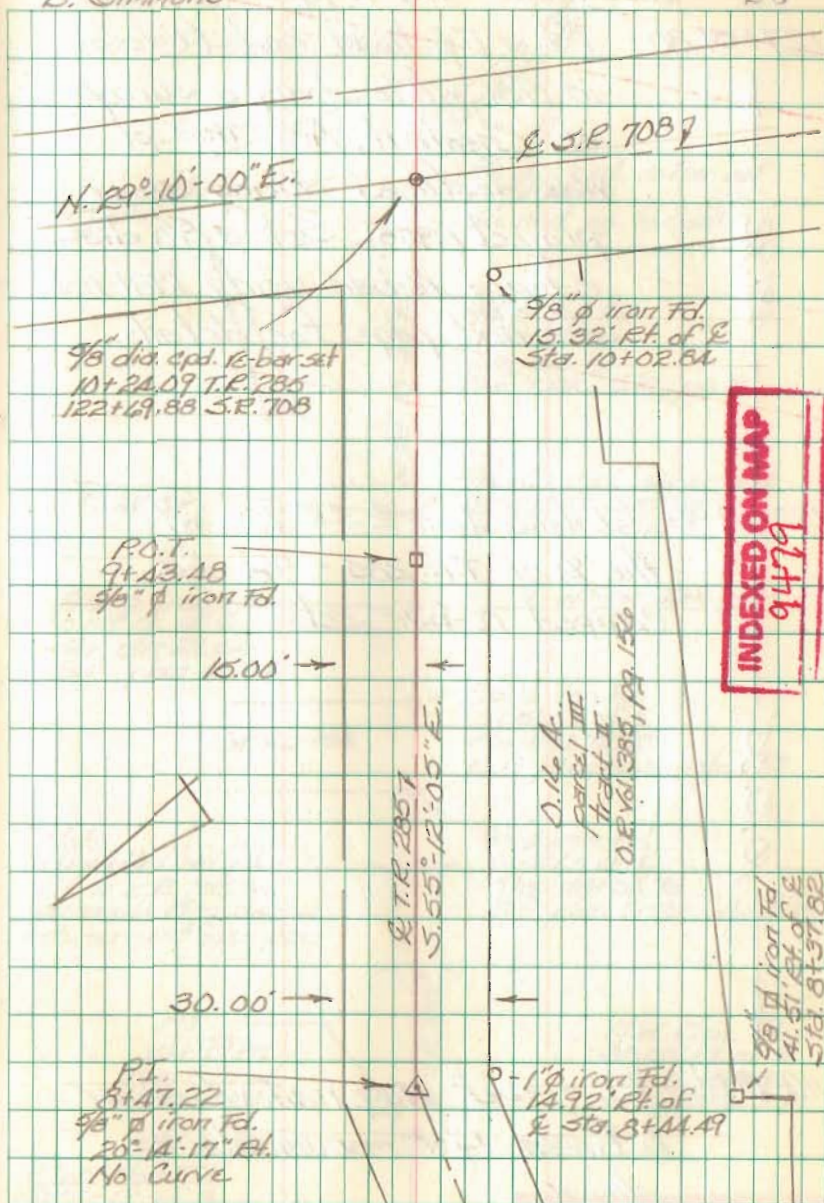 D. Simmons
℄ S.R. 708
N. 29°-10'-00" E.
5/8" ϕ iron Fd.
15.32' Rt. of ℄
Sta. 10+02.84
5/8" dia. cpd. re-bar set
10+24.09 T.R. 285
122+69.88 S.R. 708
INDEXED ON MAP
9479
P.O.T.
9+43.48
5/8" ϕ iron Fd.
15.00'
0.16 Ac.
parcel III
tract II
O.R. Vol. 385, pg. 156
℄ T.R. 285
S. 55°-12'-05" E.
5/8" ϕ iron Fd.
41.51' Rt. of ℄
Sta. 8+37.82
30.00'
P.I.
8+47.22
5/8" ϕ iron Fd.
20°-14'-17" Rt.
No Curve
1" ϕ iron Fd.
14.92' Rt. of
℄ Sta. 8+44.49